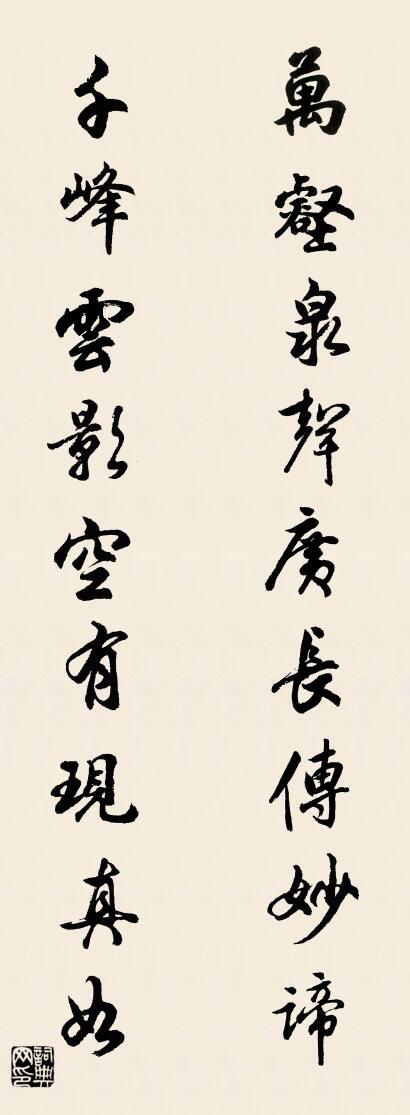 萬壑泉聲廣長傳妙諦
千峰雲影空有現真如
詞典网印